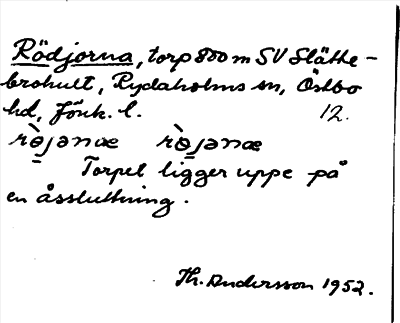 Rödjorna, torp 800 m SV Slätte-
brohult, Rydaholms sn, Östbo
hd, Jönk. l. 12.
Torpet ligger uppe på
en åssluttning.
Th. Andersson 1952.